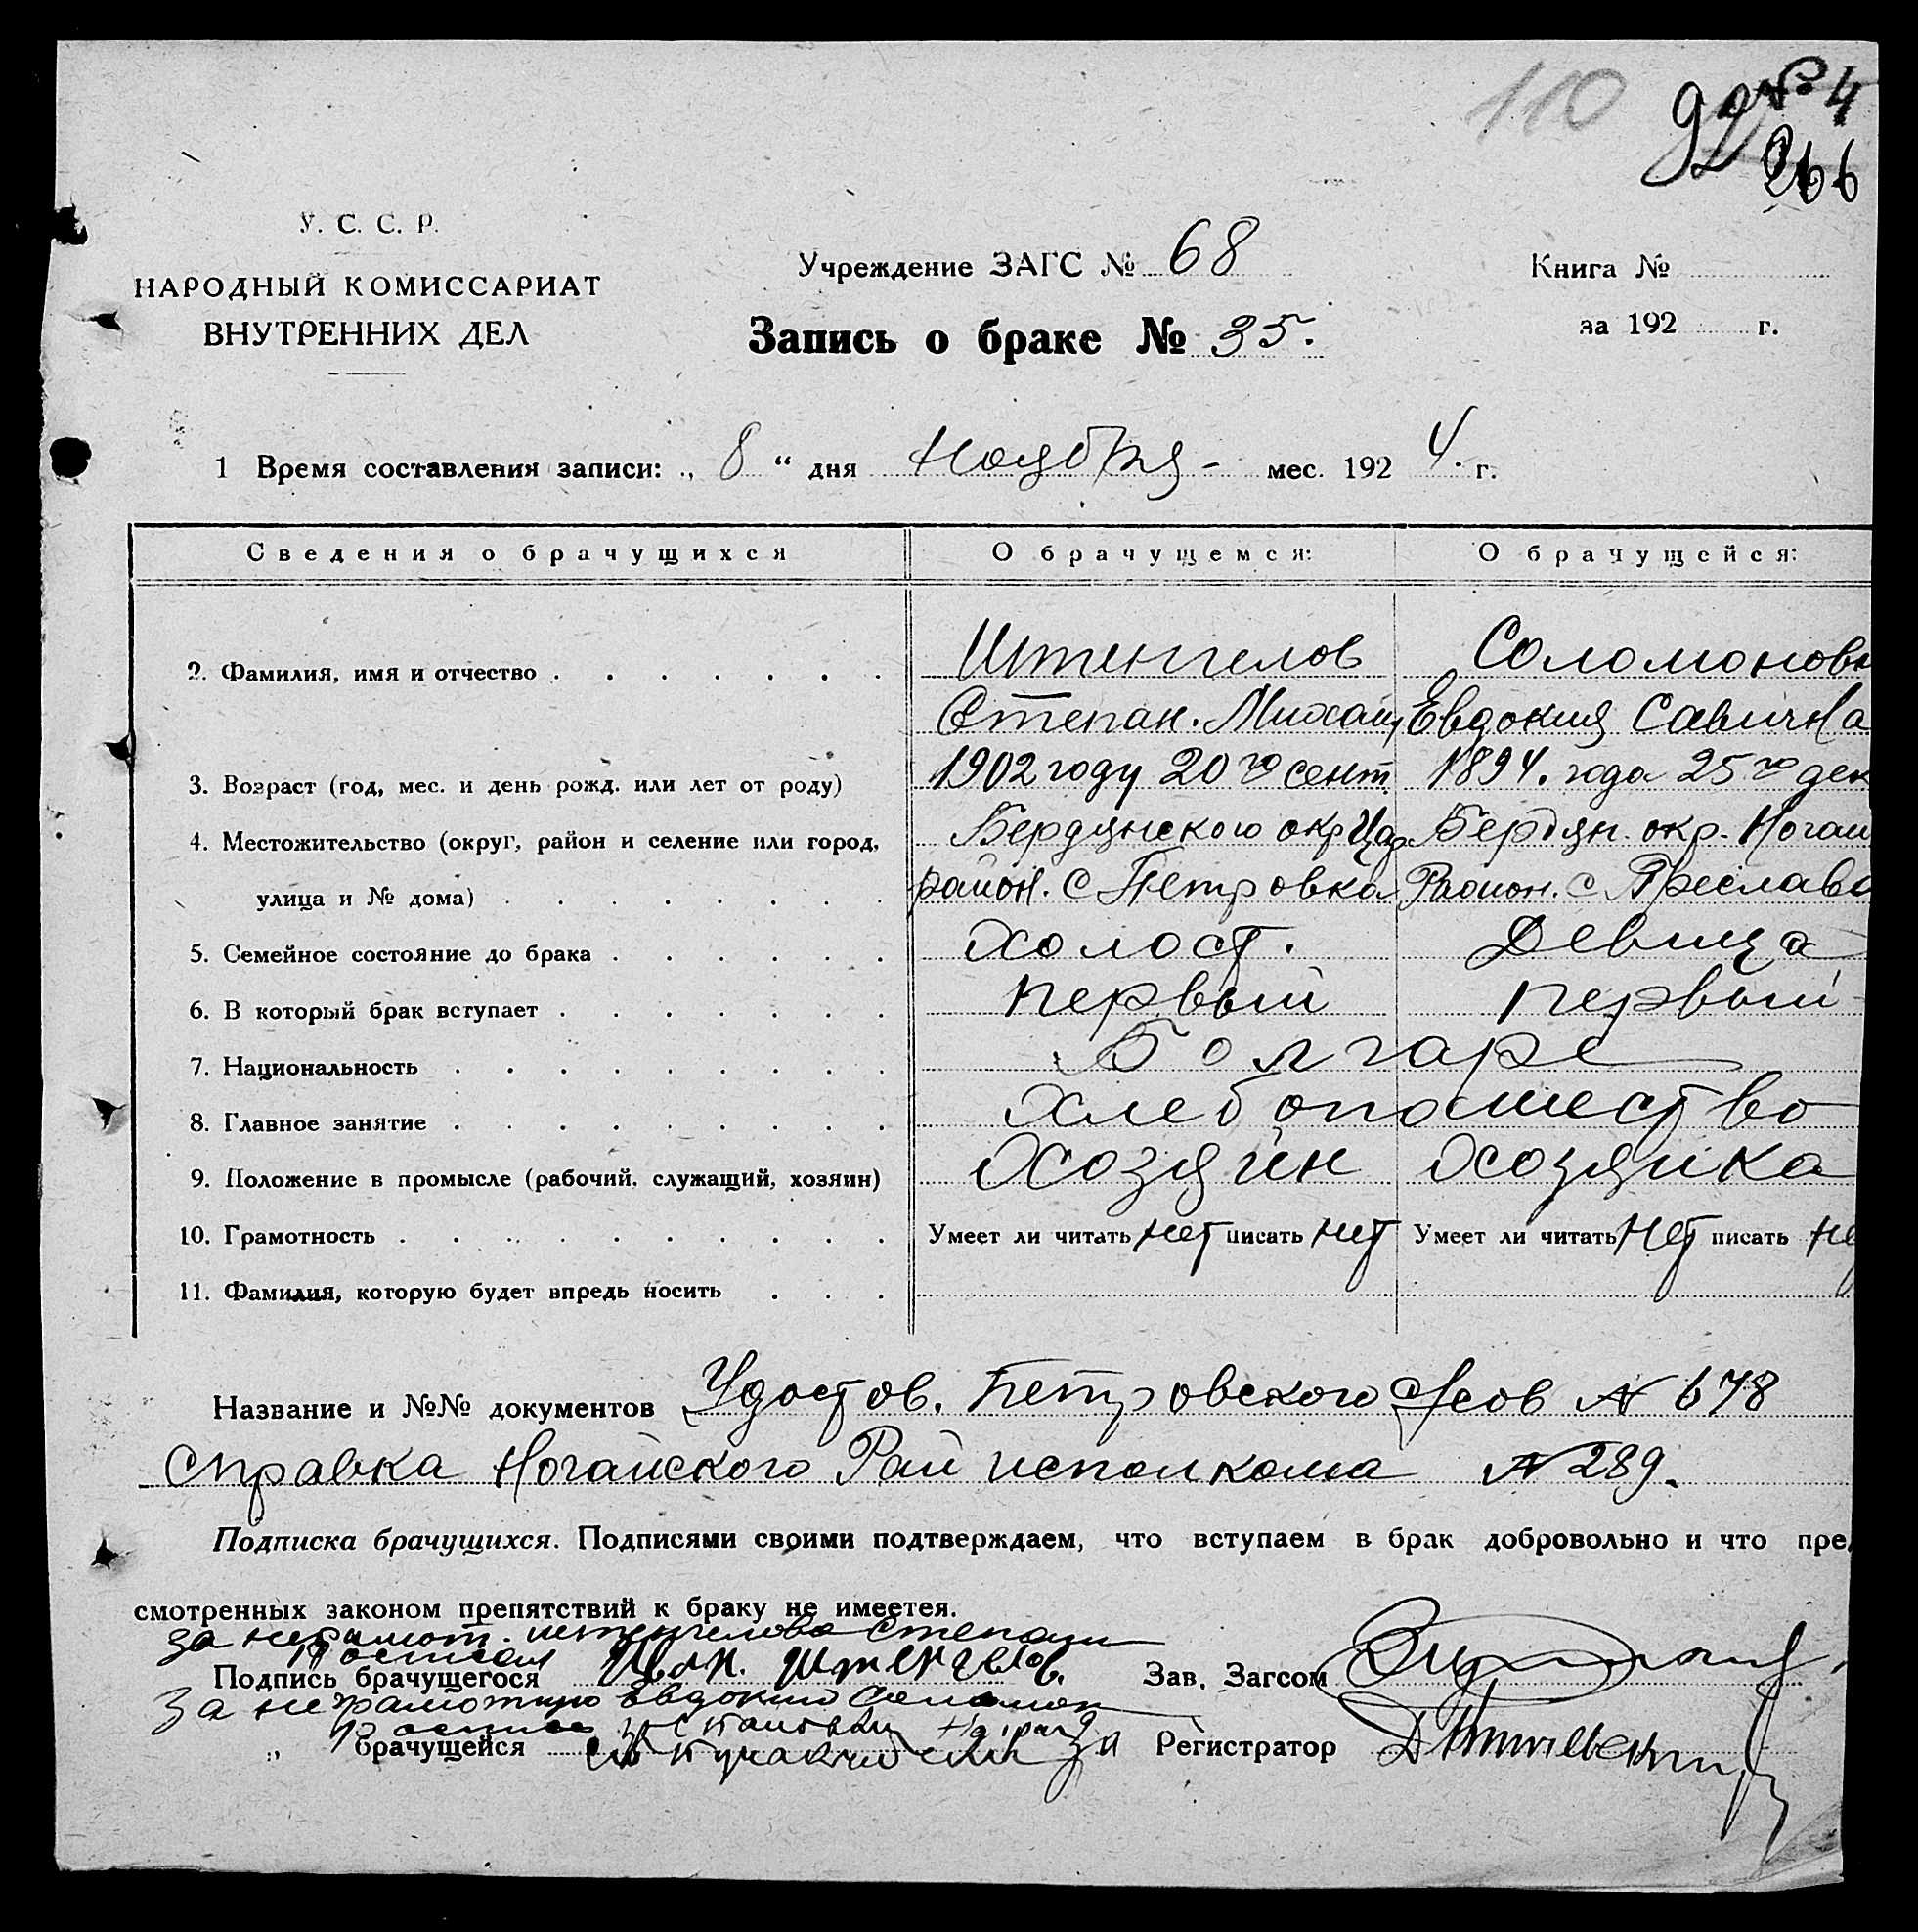 110
92 № 4
266
У. С. С. Р.
НАРОДНЫЙ КОМИССАРИАТ
ВНУТРЕННИХ ДЕЛ
Учреждение ЗАГС № 68
Книга №
Запись о браке № 35.
за 192 г.
1 Время составления записи: „ 8 “ дня Ноября - мес. 1924. г.
Сведения о брачущихся О брачущемся: О брачущейся:
2. Фамилия, имя и отчество Штенгелов Соломонов
Степан. Михаил Евдокия Савична
3. Возраст (год, мес. и день рожд. или лет от роду) 1902 году 20го сент 1894. года 25го дек
4. Местожительство (округ, район и селение или город, Бердянского окр Цар Бердян. окр. Ногай
улица и № дома) район. с Петровка Раион. с Преслава
5. Семейное состояние до брака холост. Девица
6. В который брак вступает первый первый
7. Национальность Болгаре
8. Главное занятие хлебопашество
9. Положение в промысле (рабочий, служащий, хозяин) хозяин хозяйка
10. Грамотность Умеет ли читать нет писать нет Умеет ли читать нет писать не
11. Фамилия, которую будет впредь носить
Название и №№ документов Удостов. Петровского с/сов № 678
справка Ногайского Рай исполкома № 289.
Подписка брачущихся. Подписями своими подтверждаем, что вступаем в брак добровольно и что пред
смотренных законом препятствий к браку не имеется.
за неграмот. штенгелова Степана
Подпись брачущегося Штенгелов. Зав. Загсом
За неграмотную Евдокию Соломон
„ брачущейся За Регистратор